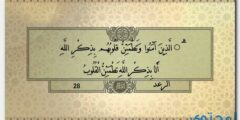 الَّذِينَ آمَنُوا وَتَطْمَئِنُّ قُلُوبُهُم بِذِكْرِ اللَّهِ
أَلَا بِذِكْرِ اللَّهِ تَطْمَئِنُّ الْقُلُوبُ
الرعد 28
محتوى